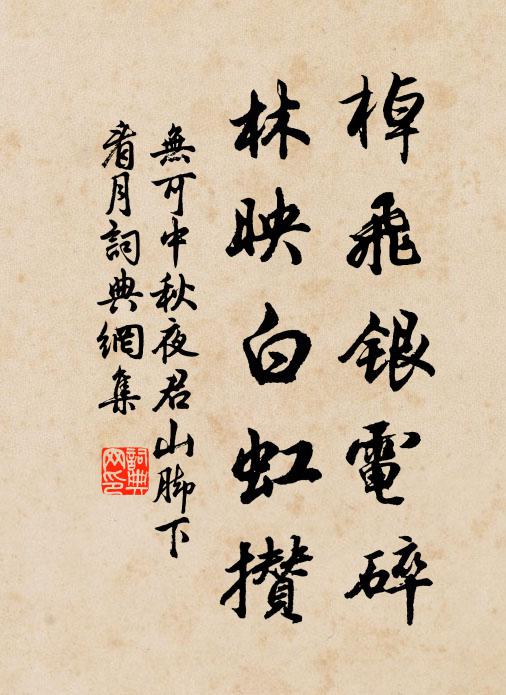 棹飛銀電碎
林映白虹攢
無可中秋夜君山脚下
看月詞典網集
詞典網印